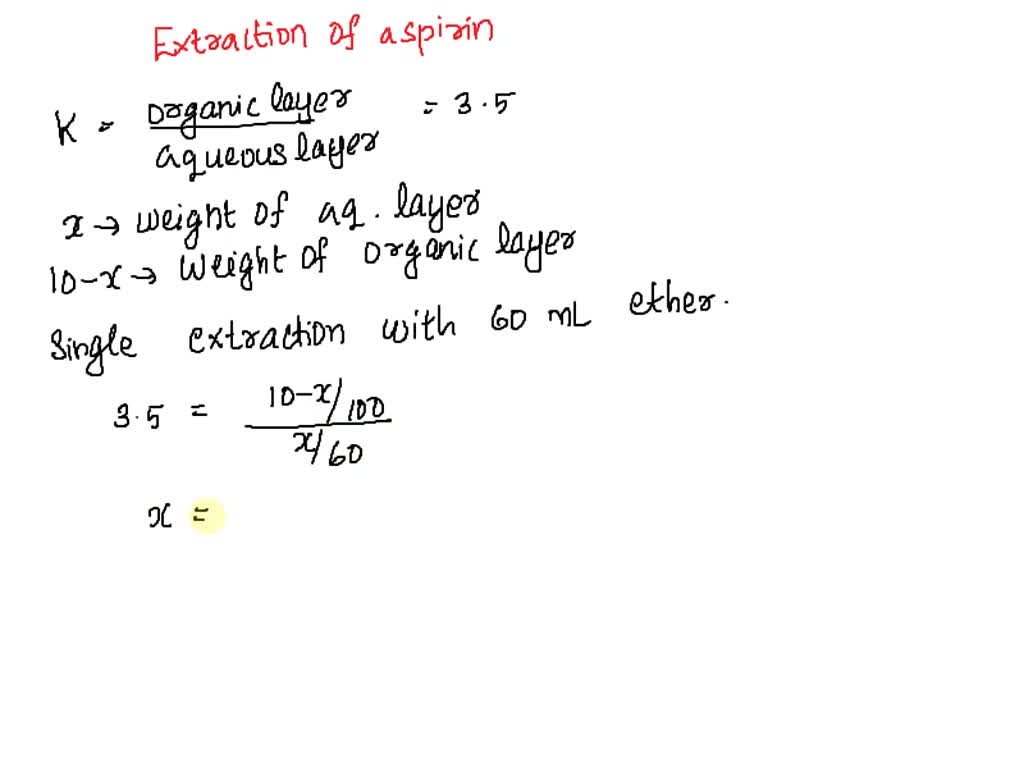 Extraction of aspirin
K = organic layer / aqueous layer = 3.5
x → weight of aq. layer
10-x → weight of organic layer
Single extraction with 60 mL ether.
3.5 = 10-x/100 / x/60
x =